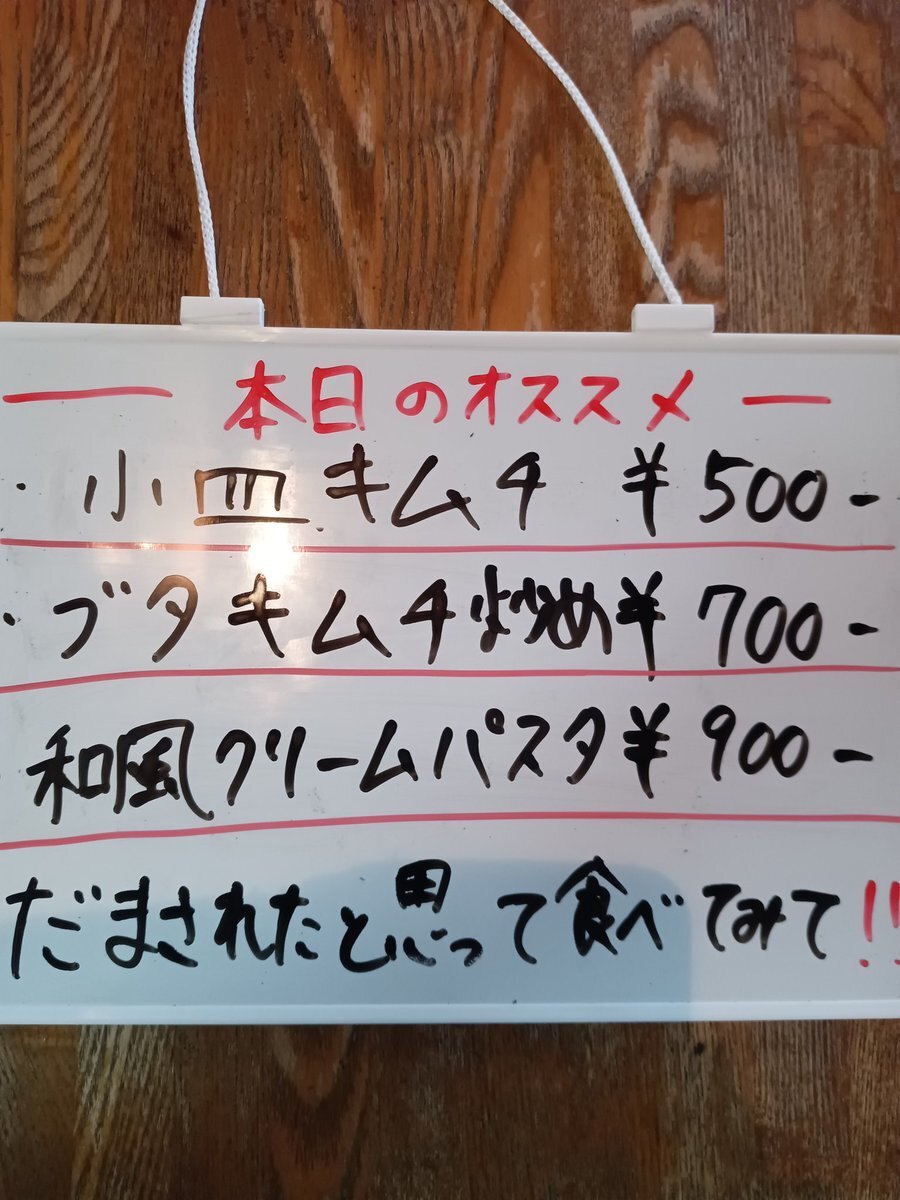 — 本日のオススメ —
・小皿キムチ ¥500-
・ブタキムチ炒め¥700-
・和風クリームパスタ¥900-
だまされたと思って食べてみて!!